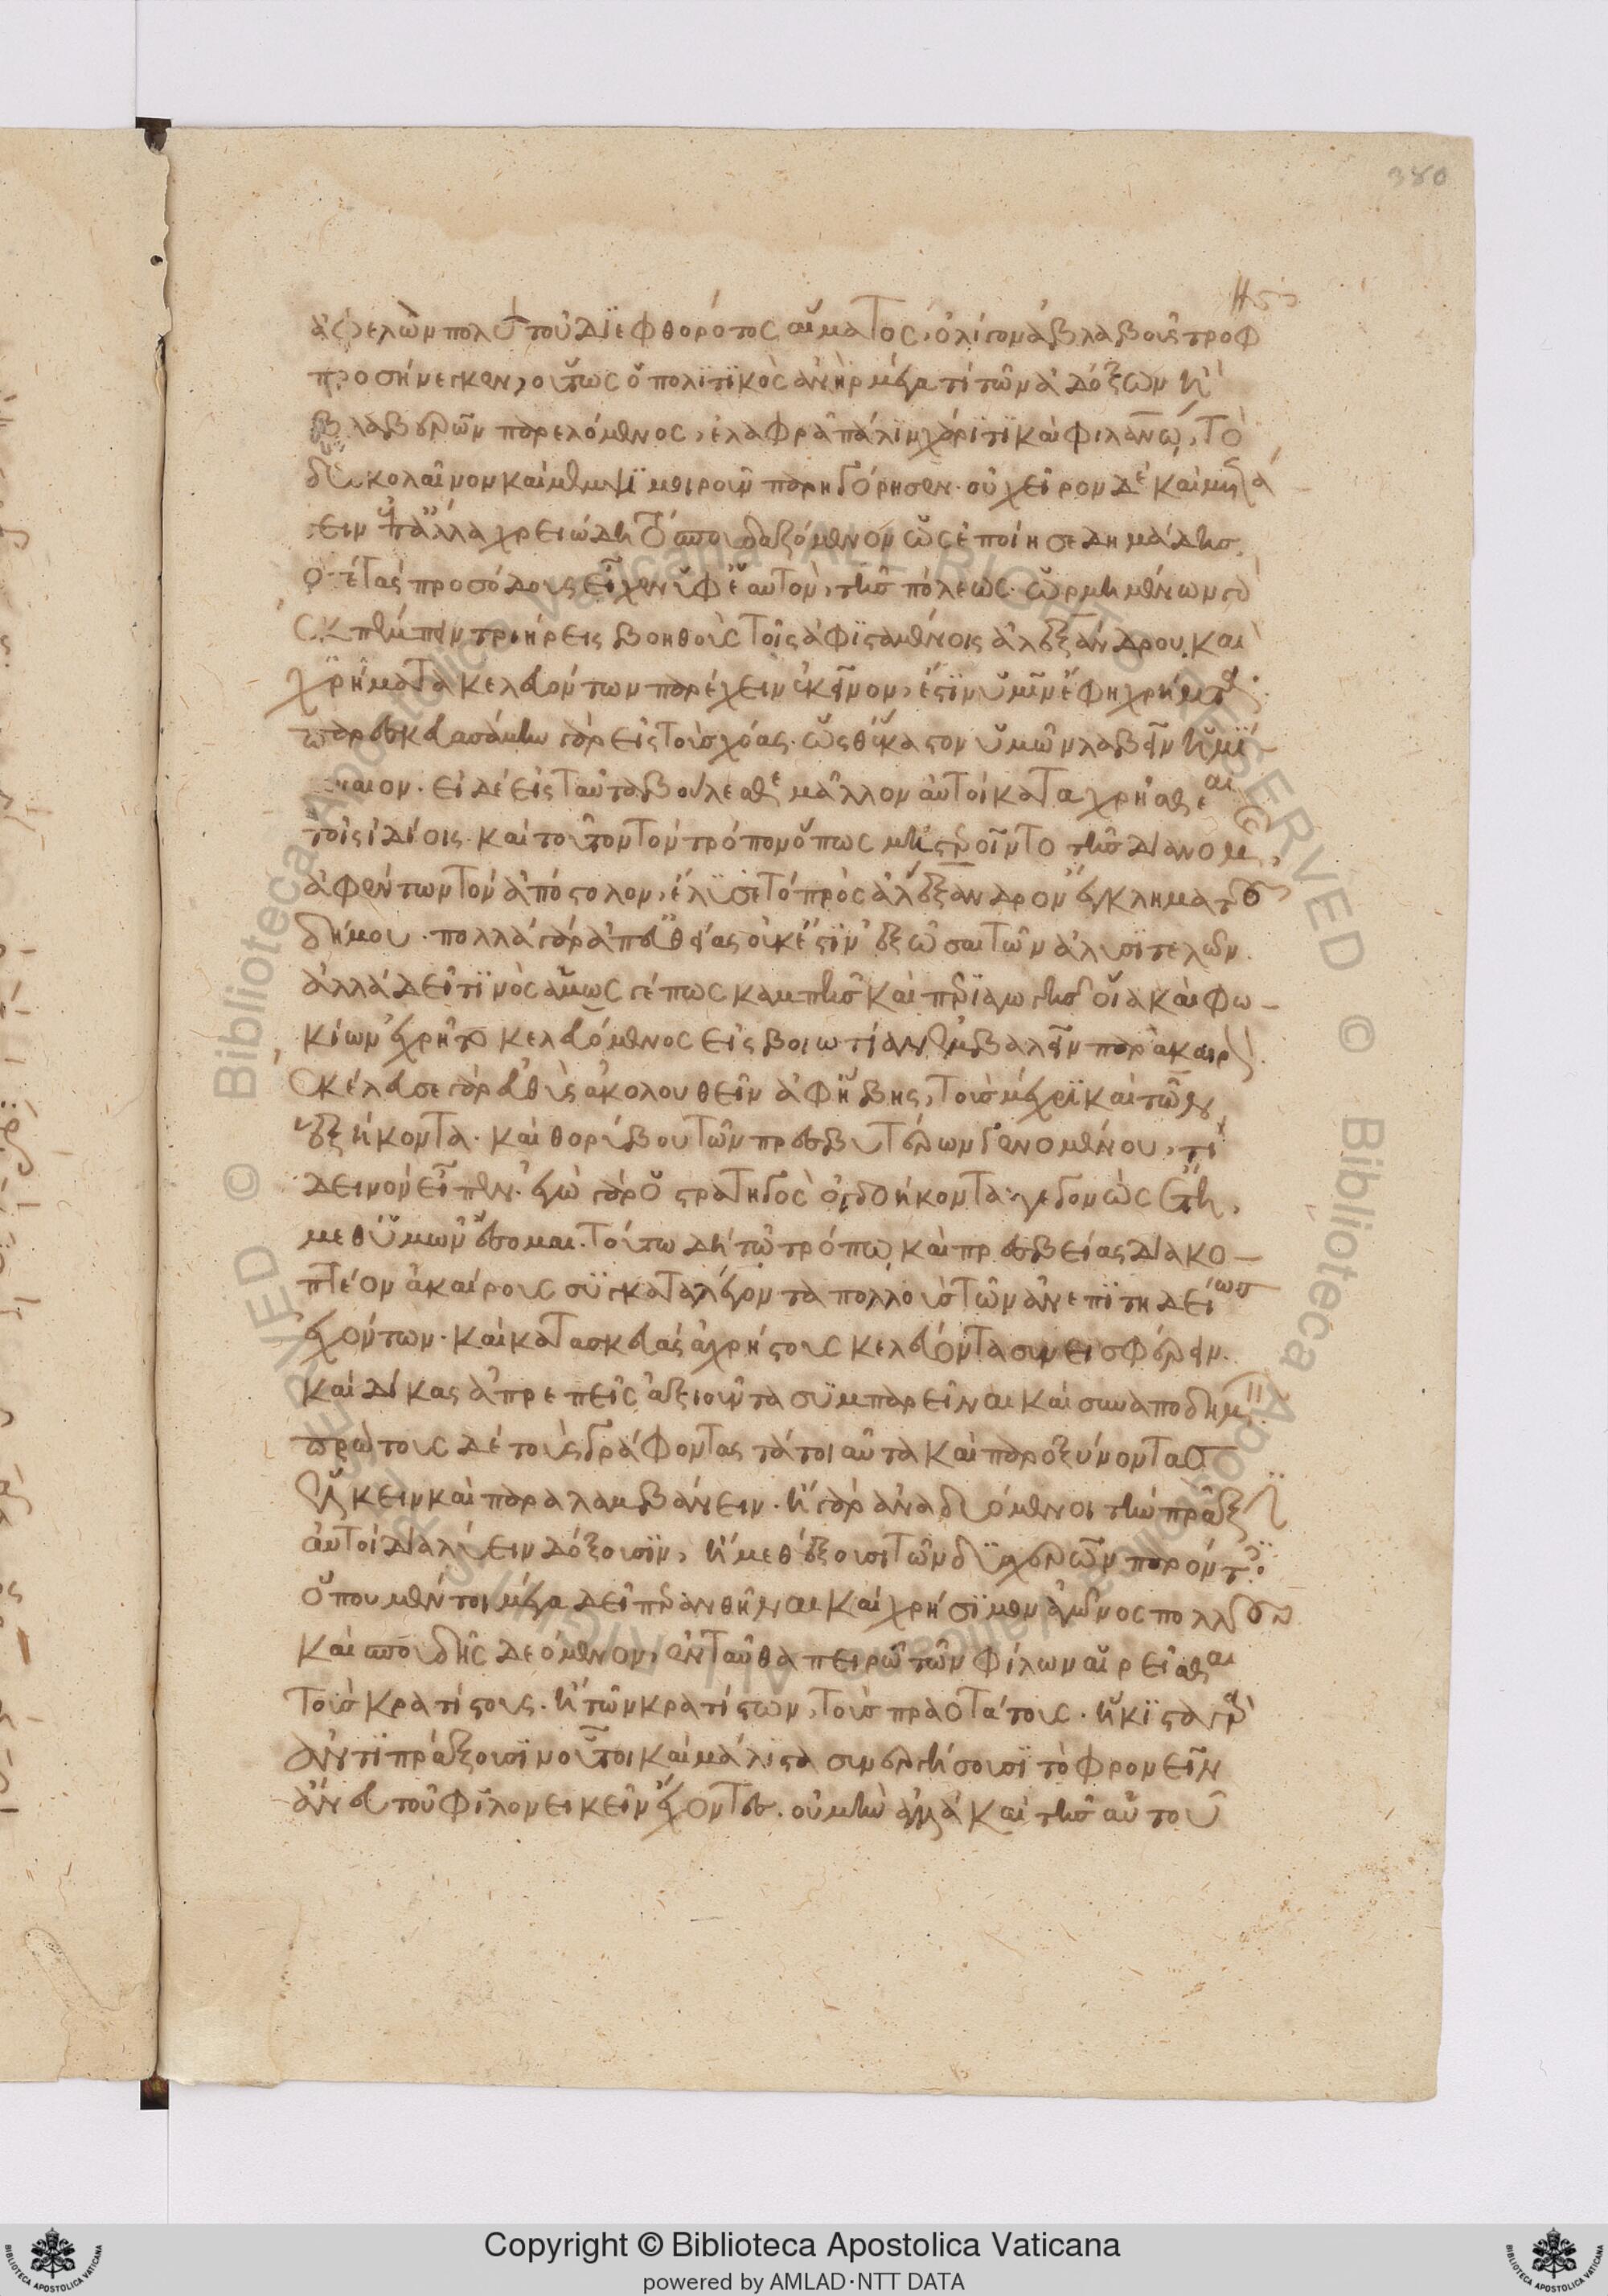 380
ἀφελὼν πολὺ τοῦ διεφθορότος αἵματος, ὀλίγον ἀβλαβοῦς τροφῆς
προσήνεγκεν, οὕτως ὁ πολιτικὸς ἀνὴρ μέγα τι τῶν ἀδόξων ἢ
βλαβερῶν παρελόμενος, ἐλαφρᾷ πάλιν χάριτι καὶ φιλανω, τὸ
δυσκολαῖνον καὶ μεμψιμοιροῦν παρηγόρησεν. οὐ χεῖρον δὲ καὶ μετά
γειν ἐπ' ἄλλα χρειώδη τὸ σπουδαζόμενον ὡς ἐποίησε Δημάδης,
ὅτε τὰς προσόδους εἶχεν ὑφ' ἑαυτὸν, τῆς πόλεως. ὡρμημένων γὰρ
ἐκπέμπειν τριήρεις βοηθοὺς τοῖς ἀφισταμένοις ἀλεξάνδρου, καὶ
χρήματα κελευόντων παρέχειν ἐκεῖνον, ἔστιν ὑμῖν ἔφη χρήματα.
παρεσκευασάμην γὰρ εἰς τοὺς χόας. ὥσθ' ἕκαστον ὑμῶν λαβεῖν ἡμι
μναῖον. εἰ δὲ εἰς ταῦτα βούλεσθε μᾶλλον αὐτοὶ καταχρῆσθαι
τοῖς ἰδίοις. καὶ τοῦτον τὸν τρόπον ὅπως μὴ στεροῖντο τῆς διανομῆς,
ἀφέντων τὸν ἀπόστολον, ἔλυσε τὸ πρὸς ἀλέξανδρον ἔγκλημα τοῦ
δήμου. πολλὰ γὰρ ἀπ' εὐθείας οὐκ ἔστιν ἐξῶσαι τῶν ἀλυσιτελῶν.
ἀλλὰ δεῖ τινὸς ἁμωςγέπως καμπῆς καὶ περιαγωγῆς οἵᾳ καὶ φω-
κίων ἐχρῆτο κελευόμενος εἰς βοιωτίαν ἐμβαλεῖν παρὰ καιρόν.
ἐκέλευσε γὰρ εὐθὺς ἀκολουθεῖν ἀφ' ἥβης, τοὺς μέχρι καὶ τῶν
ἑξήκοντα. καὶ θορύβου τῶν πρεσβυτέρων γενομένου, τί
δεινὸν εἶπεν. ἐγὼ γὰρ ὁ στρατηγὸς ὀγδοήκοντα γεγονὼς ἔτη,
μεθ' ὑμῶν ἔσομαι. τούτῳ δὴ τῷ τρόπῳ καὶ πρεσβείας διακο-
πτέον ἀκαίρους συγκαταλέγοντα πολλοὺς τῶν ἀνεπιτηδείως
ἐχόντων. καὶ κατασκευὰς ἀχρήστους κελεύοντα συνεισφέρειν.
καὶ δίκας ἀπρεπεῖς ἀξιοῦντα συμπαρεῖναι καὶ συναποδημεῖν.
πρώτους δὲ τοὺς γράφοντας τὰ τοιαῦτα καὶ παροξύνοντας
ἕλκειν καὶ παραλαμβάνειν. ἢ γὰρ ἀναδυόμενοι τὴν πρᾶξιν
αὐτοὶ διαλύειν δόξουσιν, ἢ μεθέξουσι τῶν δυσχερῶν παρόντες.
ὅπου μέντοι μέγα δεῖ περανθῆναι καὶ χρήσιμον ἀγῶνος πολλοῦ
καὶ σπουδῆς δεόμενον, ἐνταῦθα πειρῶ τῶν φίλων αἱρεῖσθαι
τοὺς κρατίστους. ἢ τῶν κρατίστων, τοὺς πραοτάτους. ἥκιστα γὰρ
ἀντιπράξουσιν οὗτοι καὶ μάλιστα συνεργήσουσι τὸ φρονεῖν
ἄνευ τοῦ φιλονεικεῖν ἔχοντες. οὐ μὴν ἀλλὰ καὶ τῆς αὑτοῦ
Copyright © Biblioteca Apostolica Vaticana
powered by AMLAD·NTT DATA